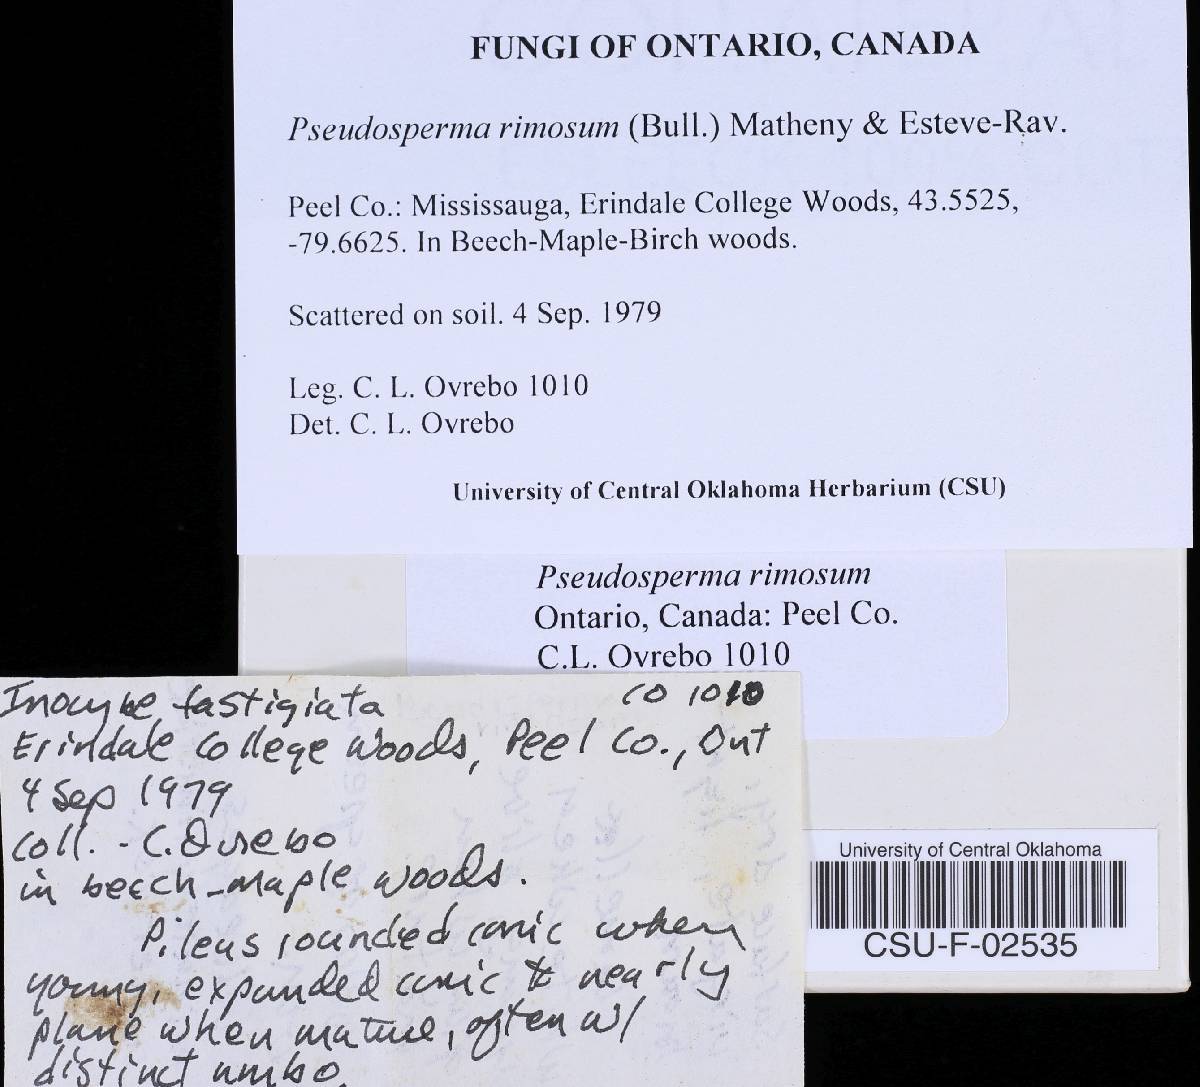 FUNGI OF ONTARIO, CANADA
Pseudosperma rimosum (Bull.) Matheny & Esteve-Rav.
Peel Co.: Mississauga, Erindale College Woods, 43.5525,
-79.6625. In Beech-Maple-Birch woods.
Scattered on soil. 4 Sep. 1979
Leg. C. L. Ovrebo 1010
Det. C. L. Ovrebo
University of Central Oklahoma Herbarium (CSU)
Pseudosperma rimosum
Ontario, Canada: Peel Co.
C.L. Ovrebo 1010
Inocybe fastigiata CO 1010
Erindale College Woods, Peel Co., Ont
4 Sep 1979
Coll. - C. Ovrebo
in beech-maple woods.
Pileus rounded conic when
young, expanded conic to nearly
plane when mature, often w/
distinct umbo.
University of Central Oklahoma
CSU-F-02535